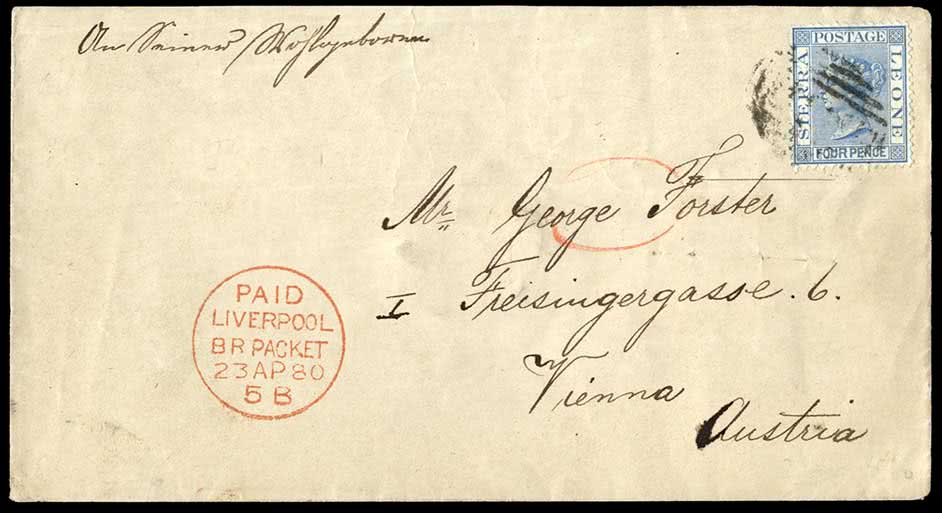 An Seiner Wohlgeboren
SIERRA POSTAGE LEONE
FOUR PENCE
Mr. George Forster
I Freisingergasse. 6.
Vienna
Austria
PAID
LIVERPOOL
BR PACKET
23 AP 80
5 B